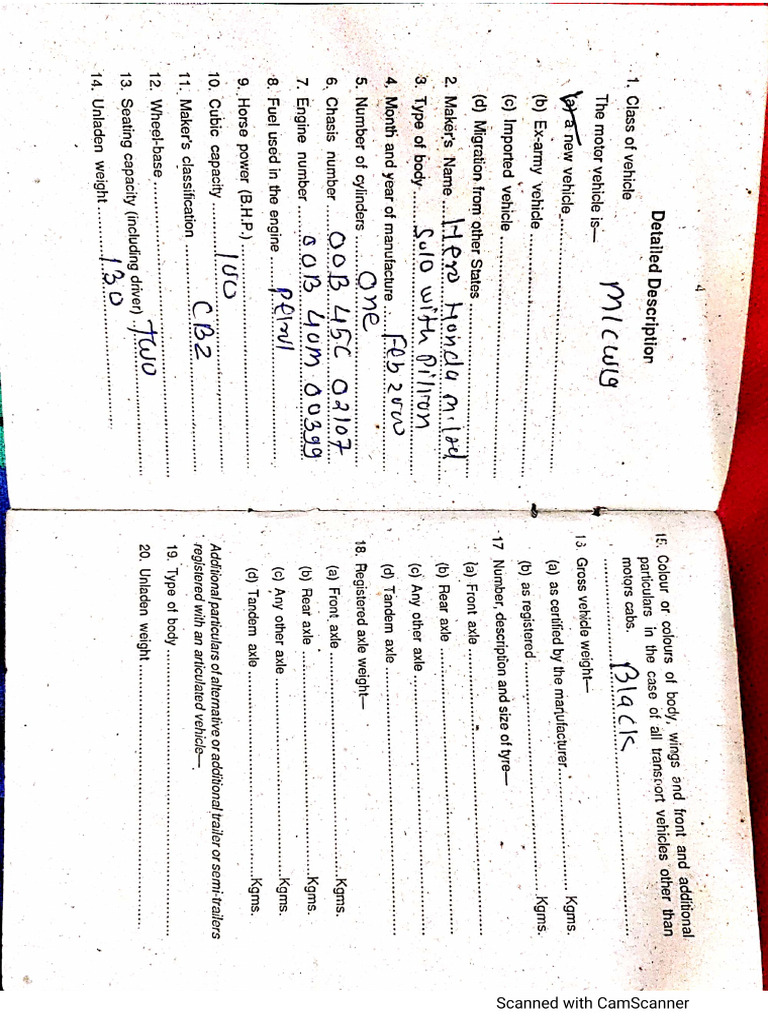 4
Detailed Description
1. Class of vehicle MICWG
The motor vehicle is—
(a) a new vehicle
(b) Ex-army vehicle
(c) Imported vehicle
(d) Migration from other States
2. Maker's Name Hero Honda
3. Type of body Solo with Pillion
4. Month and year of manufacture Feb 2000
5. Number of cylinders One
6. Chasis number 00B 45C 02107
7. Engine number 00B 40M 00399
8. Fuel used in the engine
9. Horse power (B.H.P.)
10. Cubic capacity 100
11. Maker's classification CBZ
12. Wheel-base
13. Seating capacity (including driver) TWO
14. Unladen weight 130
15. Colour or colours of body, wings and front and additional
particulars in the case of all transport vehicles other than
motors cabs. Black
13. Gross vehicle weight—
(a) as certified by the manufacturer Kgms.
(b) as registered Kgms.
17 Number, description and size of tyre—
(a) Front axle
(b) Rear axle
(c) Any other axle
(d) Tandem axle
18. Registered axle weight—
(a) Front axle Kgms.
(b) Rear axle Kgms.
(c) Any other axle Kgms.
(d) Tandem axle Kgms.
Additional particulars of alternative or additional trailer or semi-trailers
registered with an articulated vehicle—
19. Type of body
20. Unladen weight
Scanned with CamScanner